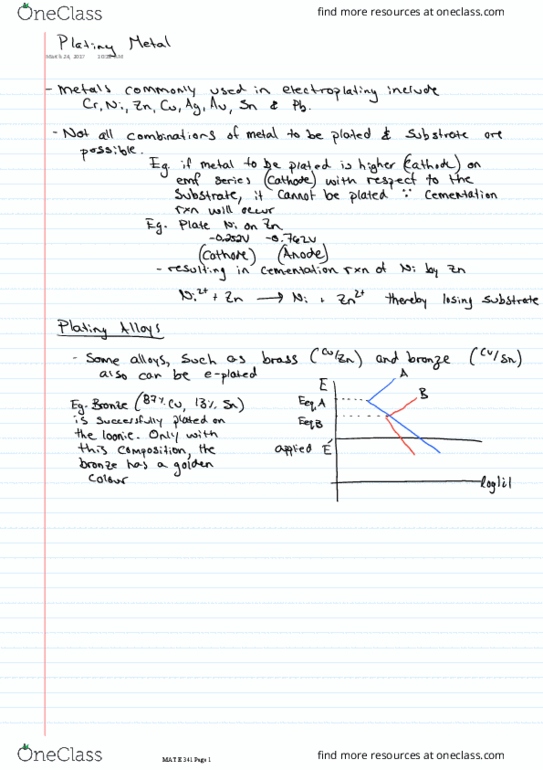 OneClass
find more resources at oneclass.com
Plating Metal
March 24, 2017
- Metals commonly used in electroplating include
Cr, Ni, Zn, Cu, Ag, Au, Sn & Pb.
- Not all combinations of metal to be plated & substrate are
possible.
Eg. if metal to be plated is higher (cathode) on
emf series (cathode) with respect to the
substrate, it cannot be plated ∵ cementation
rxn will occur
Eg. Plate Ni on Zn
-0.252V -0.762V
(Cathode) (Anode)
- resulting in cementation rxn of Ni by Zn
Ni²⁺ + Zn ⟶ Ni + Zn²⁺ thereby losing substrate
Plating Alloys
- Some alloys, such as brass (Cu/Zn) and bronze (Cu/Sn)
also can be e-plated
Eg. Bronze (87% Cu, 13% Sn)
is successfully plated on
the loonie. Only with
this composition, the
bronze has a golden
colour
E
A
Eeq,A
B
Eeq,B
applied E
log|i|
OneClass
MAT E 341 Page 1
find more resources at oneclass.com